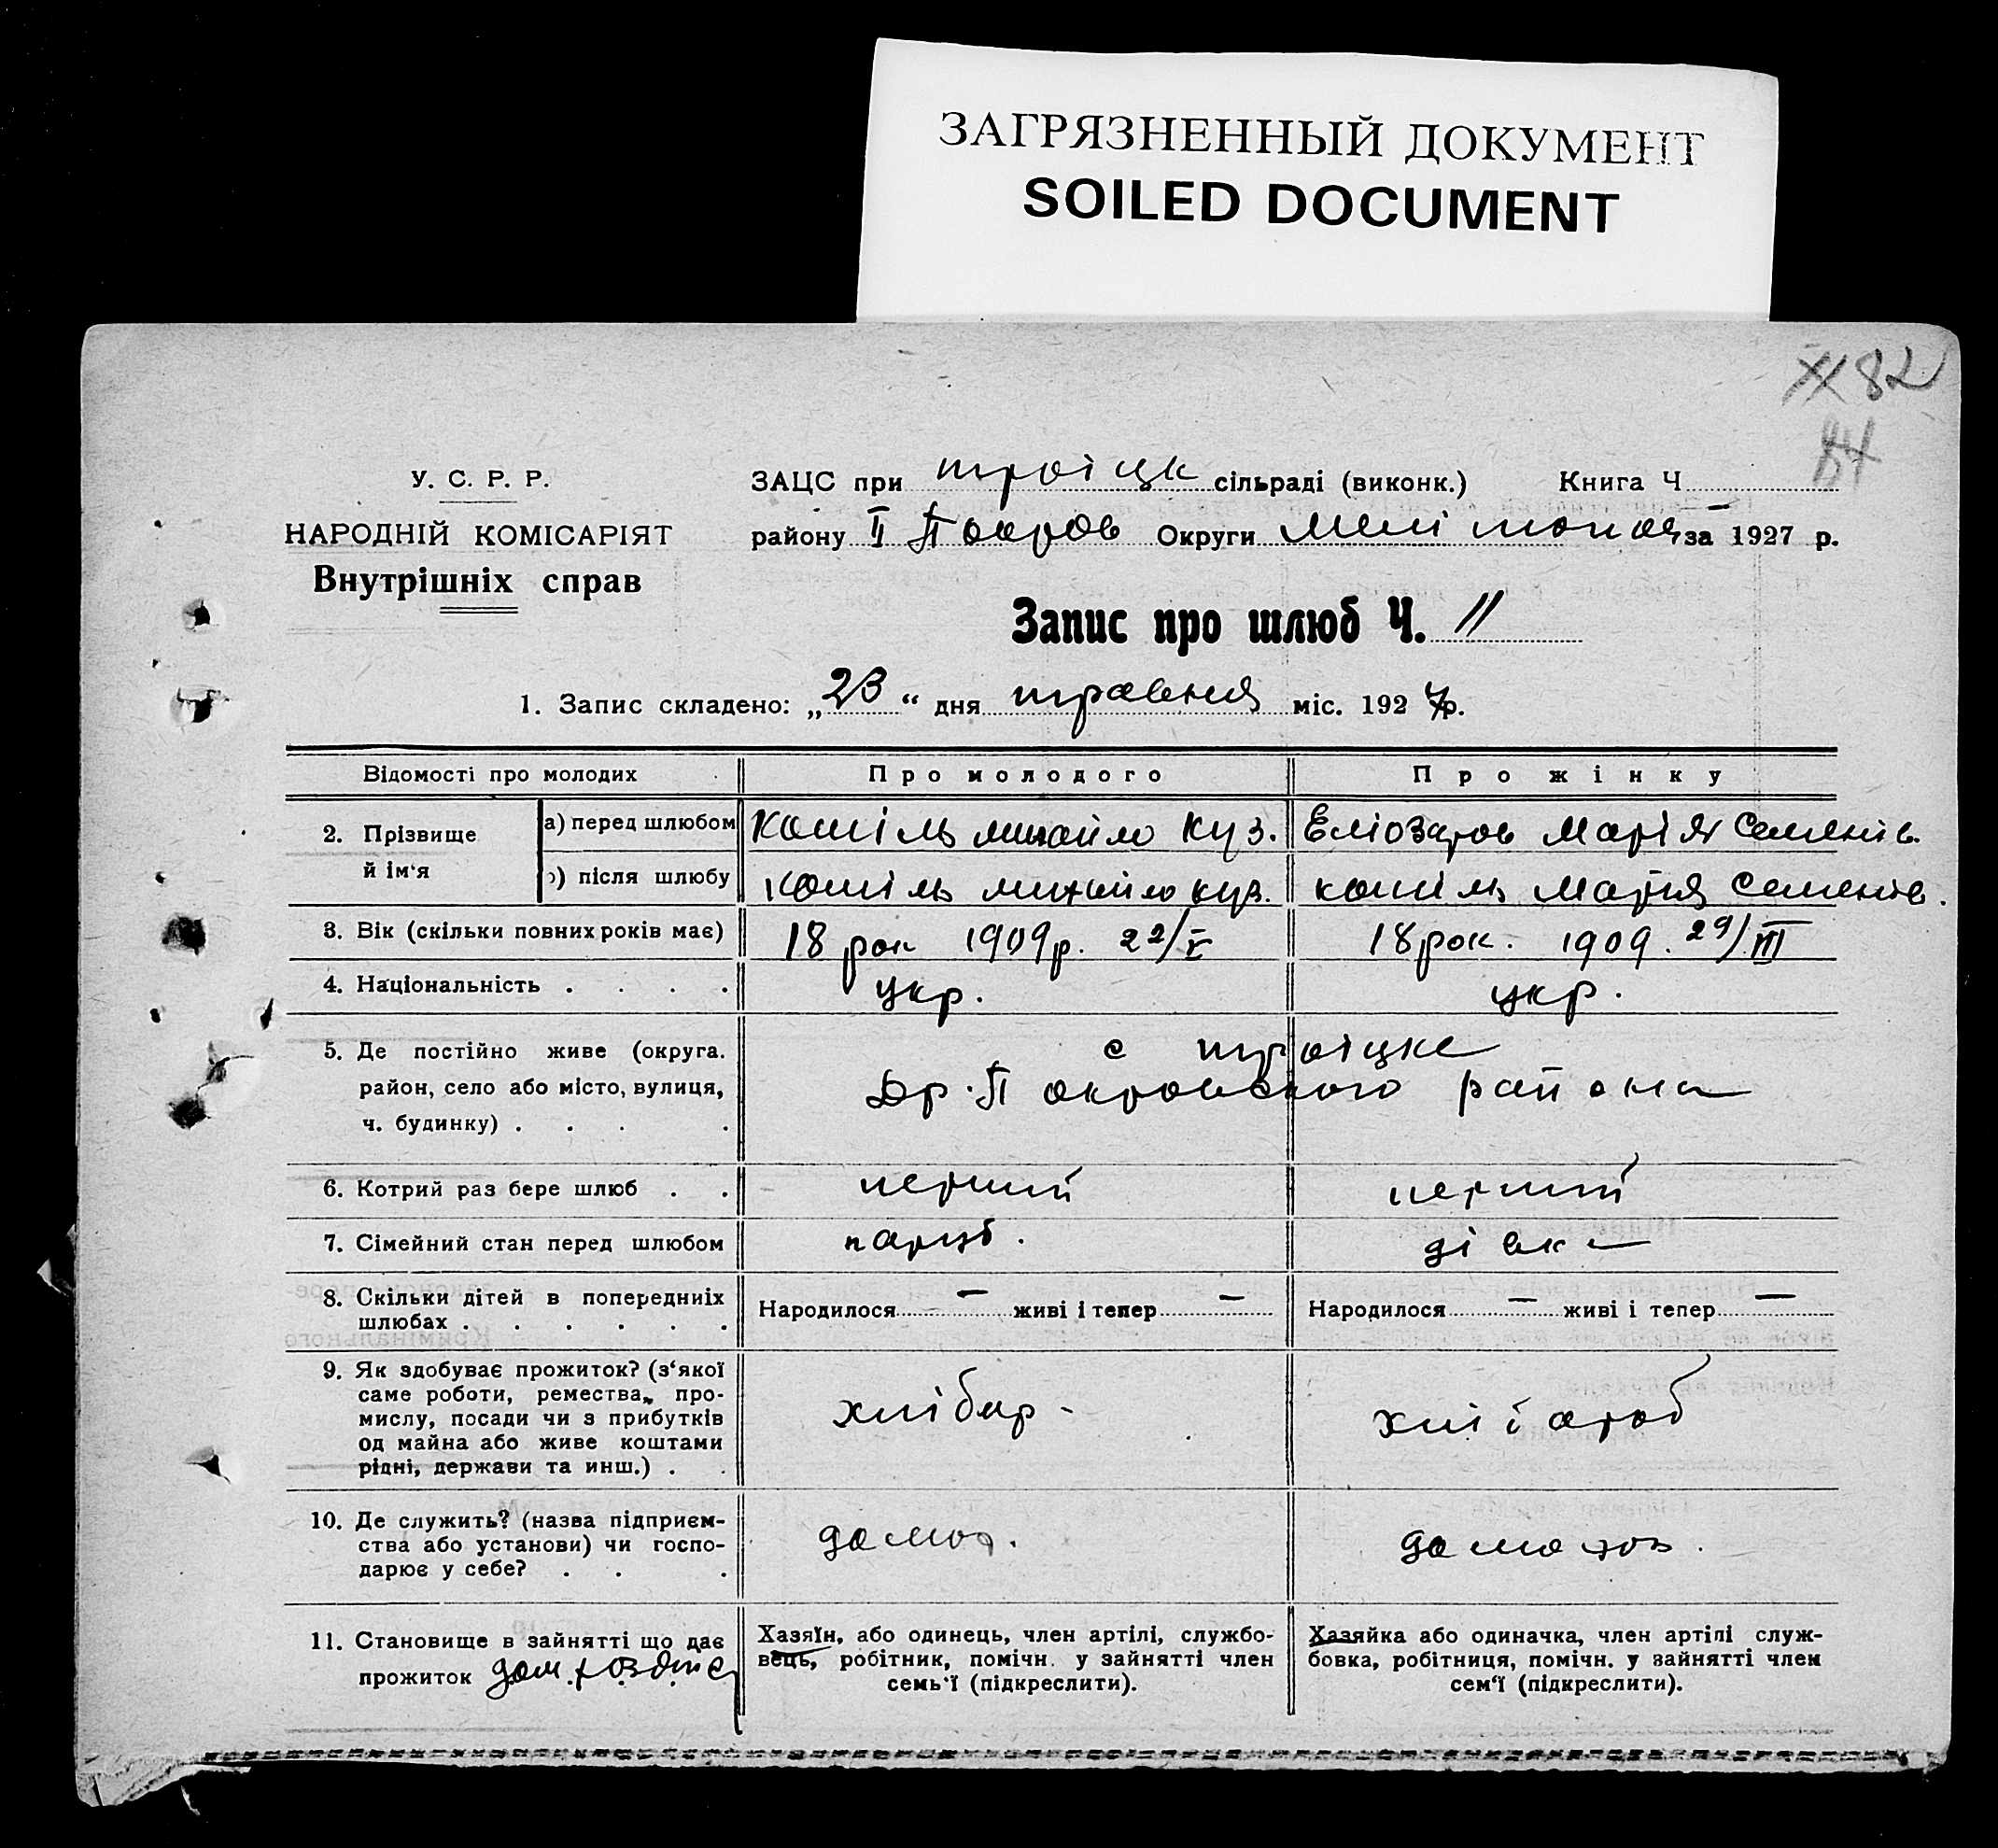 ЗАГРЯЗНЕННЫЙ ДОКУМЕНТ
SOILED DOCUMENT
82
У. С. Р. Р.
НАРОДНІЙ КОМІСАРІЯТ
Внутрішніх справ
ЗАЦС при троіцк сільраді (виконк.) Книга Ч
району II Покров Округи Мелітопол за 1927 р.
Запис про шлюб Ч. 11
1. Запис складено: „23“ дня травня міс. 1927 р.
Відомості про молодих Про молодого Про жінку
2. Прізвище й ім‘я
а) перед шлюбом Кошіль михайло Куз. Еліозаров Марія Семенів.
б) після шлюбу Кошіль михайло куз. кошіль Марія Семенів.
3. Вік (скільки повних років має) 18 рок 1909 р. 22/V 18 рок. 1909. 29/III
4. Національність . . . . укр. укр.
5. Де постійно живе (округа. район, село або місто, вулиця, ч. будинку) . . . .
с троіцке
Др. Покровського района
6. Котрий раз бере шлюб . . перший перший
7. Сімейний стан перед шлюбом паруб. дівка
8. Скільки дітей в попередниіх шлюбах . . . . . .
Народилося — живі і тепер — Народилося — живі і тепер —
9. Як здобуває прожиток? (з‘якої саме роботи, ремества, промислу, посади чи з прибутків од майна або живе коштами рідні, держави та инш.) . .
хлібор- хлібороб
10. Де служить? (назва підприємства або установи) чи господарює у себе? . . .
домог. домогоз.
11. Становище в зайнятті що дає прожиток
Хазяїн, або одинець, член артілі, службовець, робітник, помічн. у зайнятті член семь‘ї (підкреслити).
Хазяйка або одиначка, член артілі службовка, робітниця, помічн. у зайнятті член сем‘ї (підкреслити).